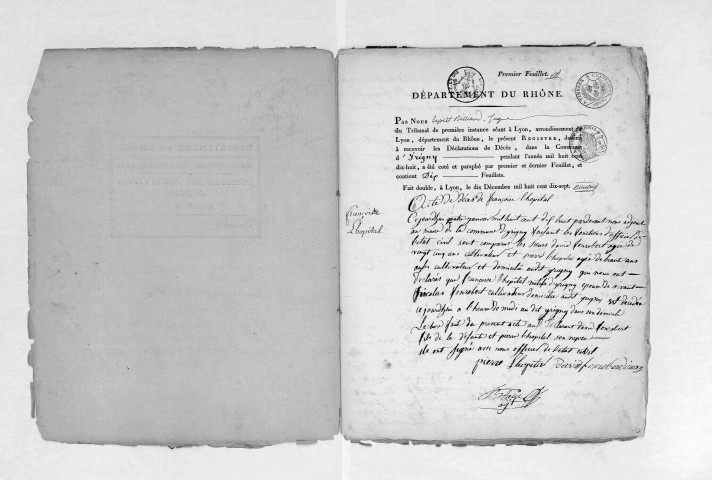 Premier Feuillet.
DÉPARTEMENT DU RHÔNE.
PAR NOUS
du Tribunal de première instance séant à Lyon, arrondissement de
Lyon, département du Rhône, le présent REGISTRE, destiné
à recevoir les Déclarations de Décès, dans la Commune
d'Irigny pendant l'année mil huit cent
dix-huit, a été coté et paraphé par premier et dernier Feuillet, et
contient Dix Feuillets.
Fait double, à Lyon, le dix Décembre mil huit cent dix-sept.
françoise
Lhopital
Acte de décès de françoise lhopital
Cejourdhui janvier mil huit cent dix huit pardevant nous adjoint
au maire de la commune dyrigny faisant les fonctions d'officier de
letat civil sont comparus les sieurs david fonrobert agé de
vingt cinq ans cultivateur et pierre lhopital agé de trente ans
aussi cultivateur et domicilié audit yrigny qui nous ont
déclarés que françoise lhopital native dyrigny epouse de
nicolas fonrobert cultivateur domicilié audit yrigny est décédée
cejourdhui a lheure de midi au dit yrigny dans son domicile
Lecture faite du present acte aux déclarant david fonrobert
fils de la défunte et pierre lhopital son neveu
ils ont signé avec nous officier de letat civil
pierre Lhopital david fonrobert